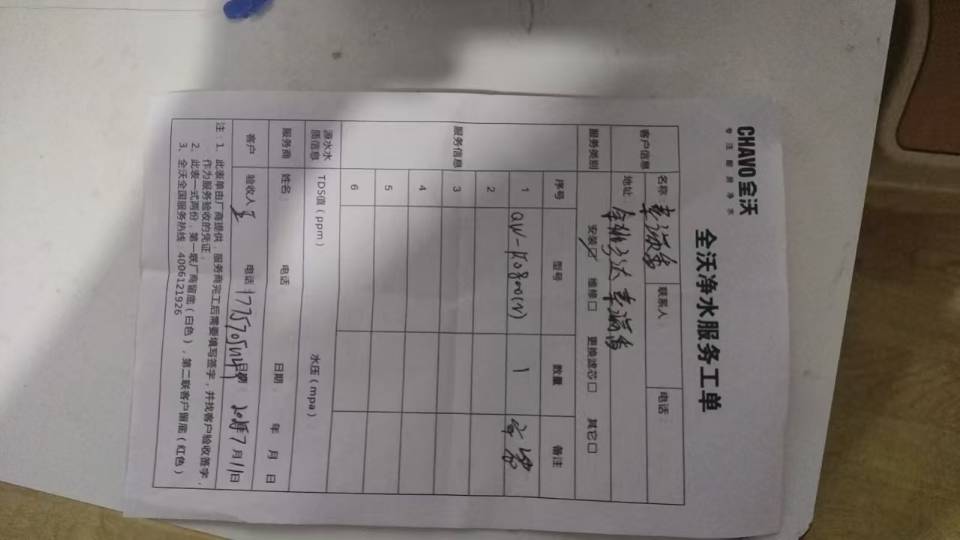 CHAVO全沃
专注厨房净水
全沃净水服务工单
客户信息 名称: 联系人: 电话:
地址: 万达
服务类别 安装☑ 维修□ 更换滤芯□ 其它□
服务信息 序号 型号 数量 备注
1 QW-R0800(N) 1
2
3
4
5
6
源水水质信息 TDS值(ppm) 水压(mpa)
服务商 姓名: 电话 日期: 年 月 日
客户 验收人: 电话: 日期: 7月11日
注:1、此表单由厂商提供,服务商完工后需要填写签字,并找客户验收签字,
作为服务验收的凭证;
2、此表一式两份,第一联厂商留底(白色),第二联客户留底(红色)
3、全沃全国服务热线:4006121926